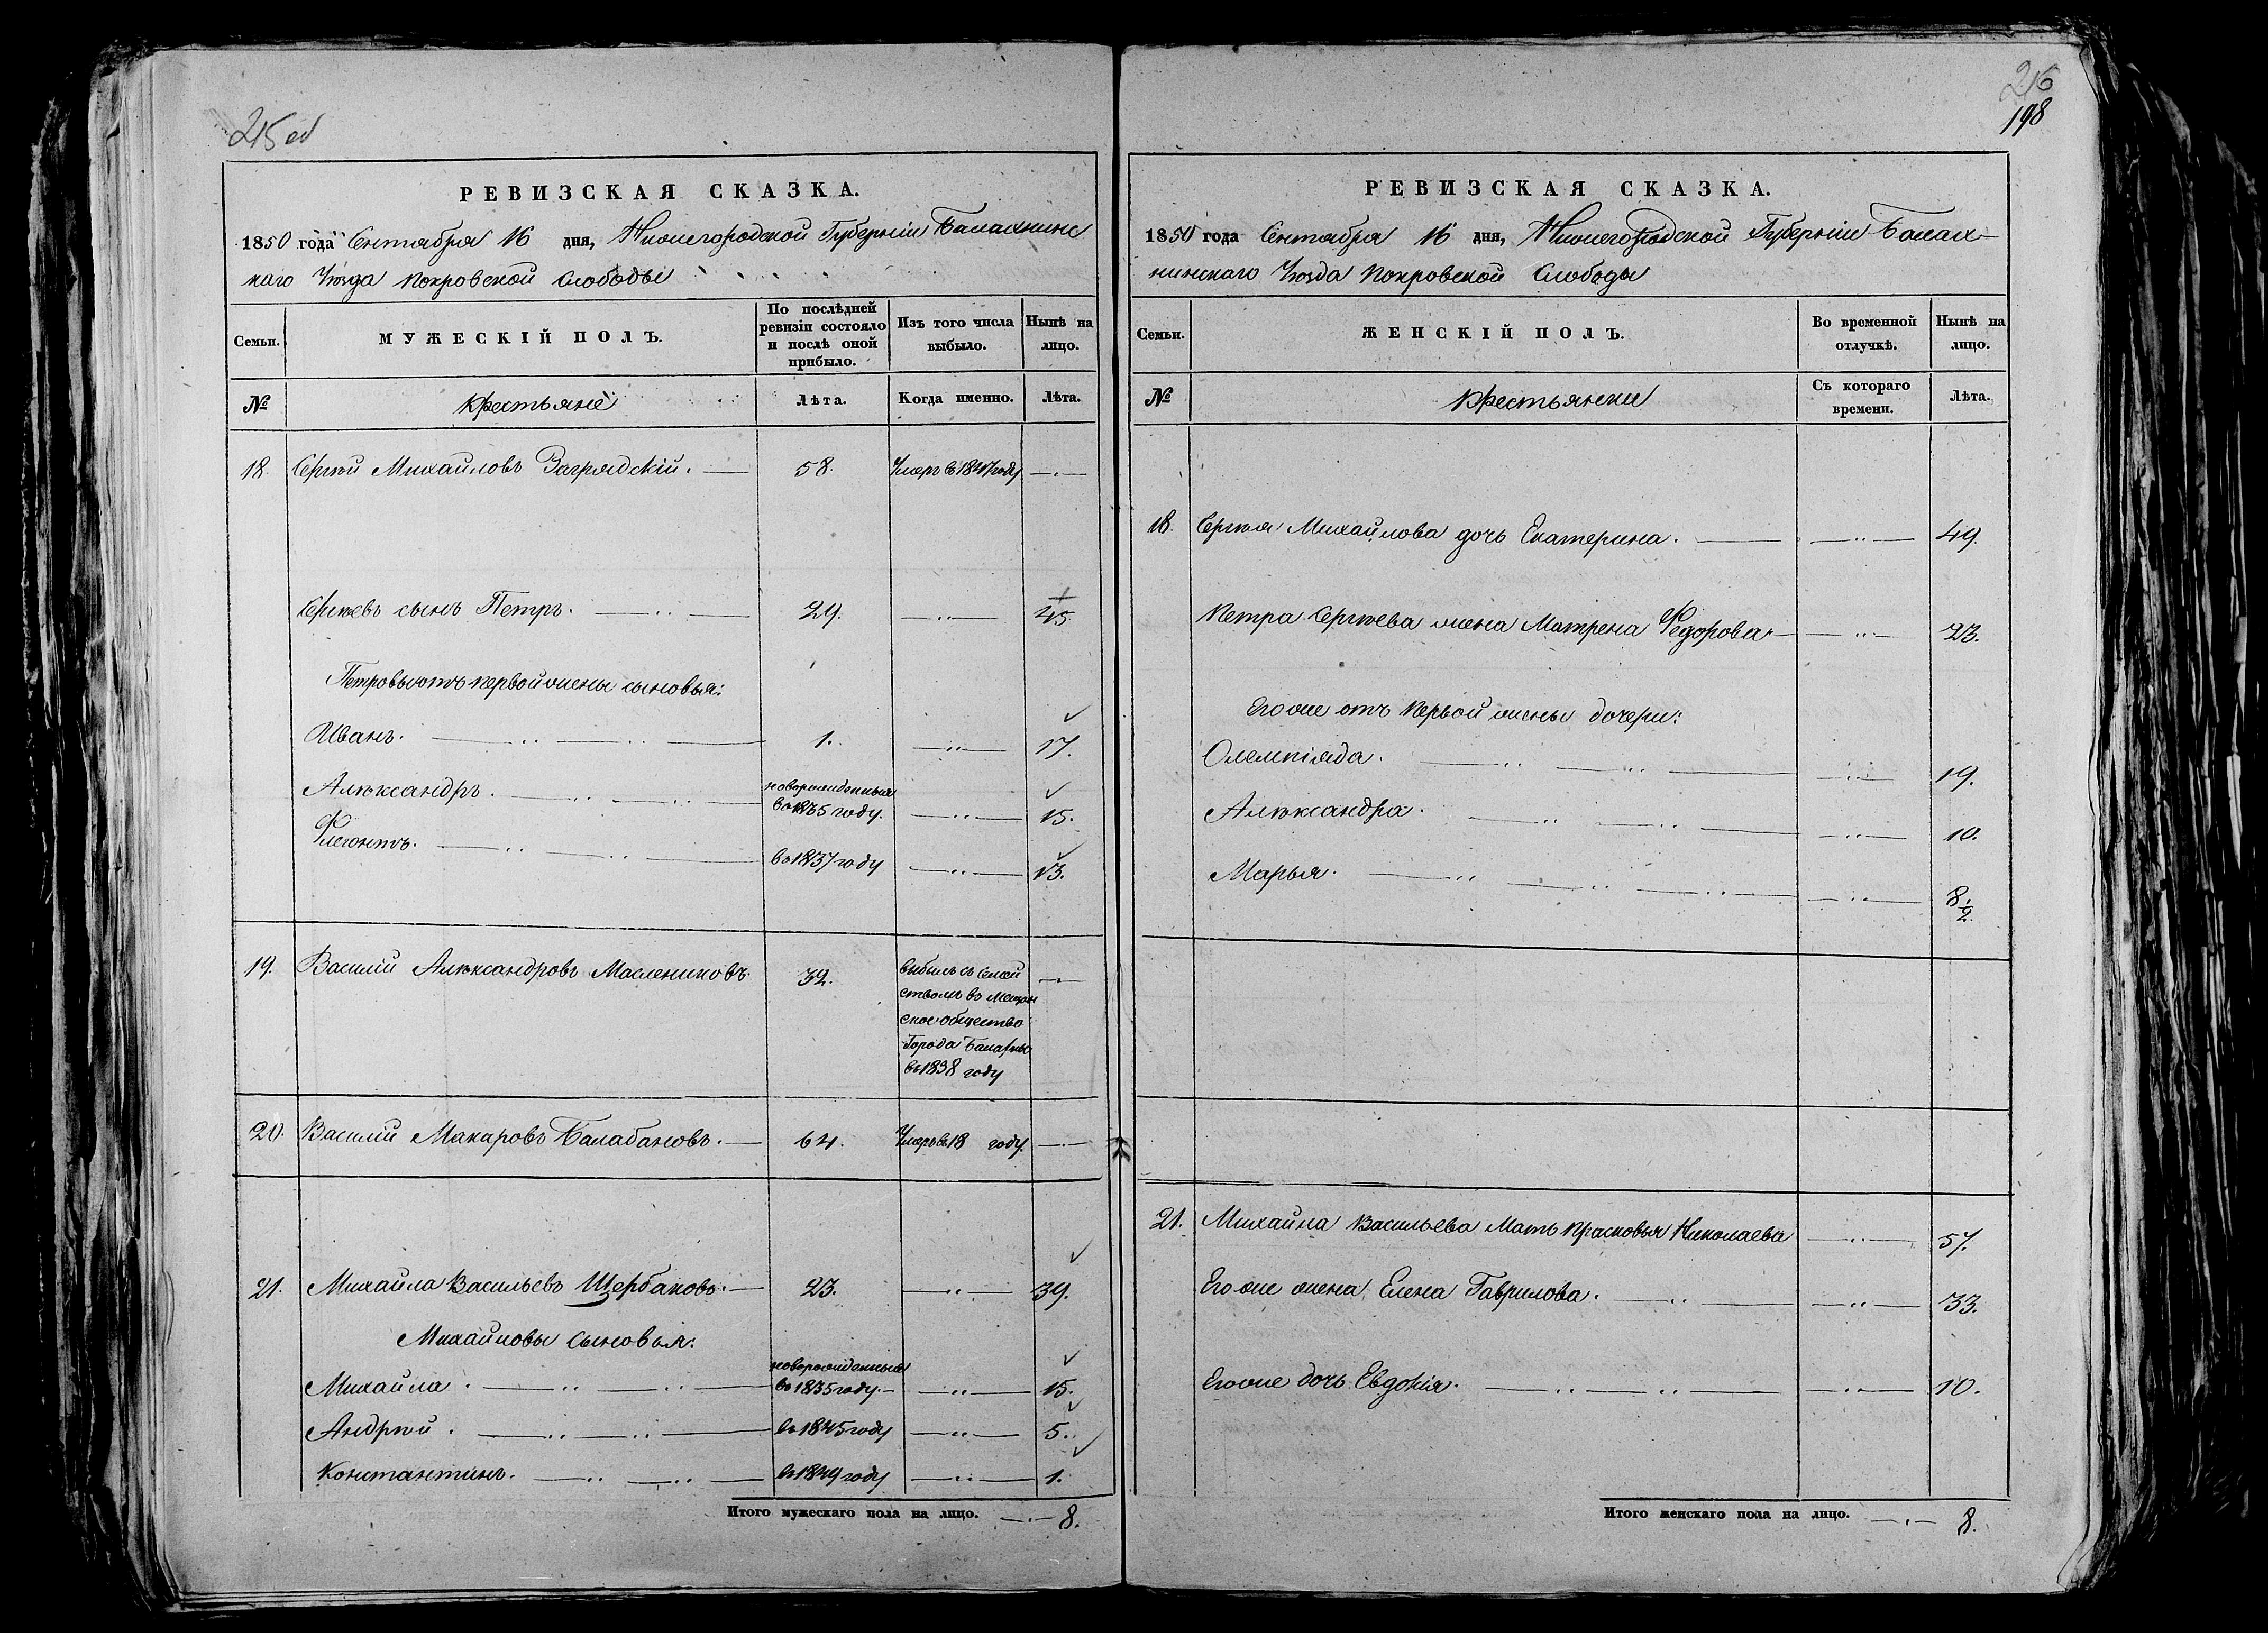 215 об
РЕВИЗСКАЯ СКАЗКА.
1850 года Сентября 16 дня, Нижегородской Губерніи Балахнинс
каго Уѣзда Покровской Слободы
Семьи. МУЖЕСКІЙ ПОЛЪ. По послѣдней ревизіи состояло и послѣ оной прибыло. Изъ того числа выбыло. Нынѣ на лицо.
№ Крестьяне Лѣта. Когда именно. Лѣта.
18. Сергѣй Михайловъ Загрядскій. 58. Умеръ въ 1847 году
Сергѣевъ сынъ Петръ. 29. 45.
Петровы отъ первой жены сыновья:
Иванъ. 1. 17.
Алѣксандръ. новорожденныя въ 1835 году. 15.
Флегонтъ. въ 1837 году 13.
19. Василій Алѣксандровъ Маслениковъ. 32. выбылъ съ Семей
ствомъ во Мещан
ское общество
Города Балахны
въ 1838 году
20. Василій Макаровъ Балабановъ. 64. Умеръ въ 18 году.
21. Михайла Васильевъ Щербаковъ. 23. 39.
Михайловы Сыновья:
Михайла. новорожденныя въ 1835 году. 15.
Андрѣй. въ 1845 году 5.
Константинъ. въ 1849 году 1.
Итого мужескаго пола на лицо. 8.
216
198
РЕВИЗСКАЯ СКАЗКА.
1850 года Сентября 16 дня, Нижегородской Губерніи Балах-
нинскаго Уѣзда Покровской Слободы
Семьи. ЖЕНСКІЙ ПОЛЪ. Во временной отлучкѣ. Нынѣ на лицо.
№ Крестьянски Съ котораго времени. Лѣта.
18. Сергѣя Михайлова дочь Екатерина. 49.
Петра Сергѣева жена Матрена Федорова 23.
Его же отъ Первой жены дочери:
Олемпіяда. 19.
Алѣксандра. 10.
Марья. 8 1/2.
21. Михайла Васильева Мать Прасковья Николаева 57.
Его же жена Елена Гаврилова. 33.
Его же дочь Евдокія. 10.
Итого женскаго пола на лицо. 8.